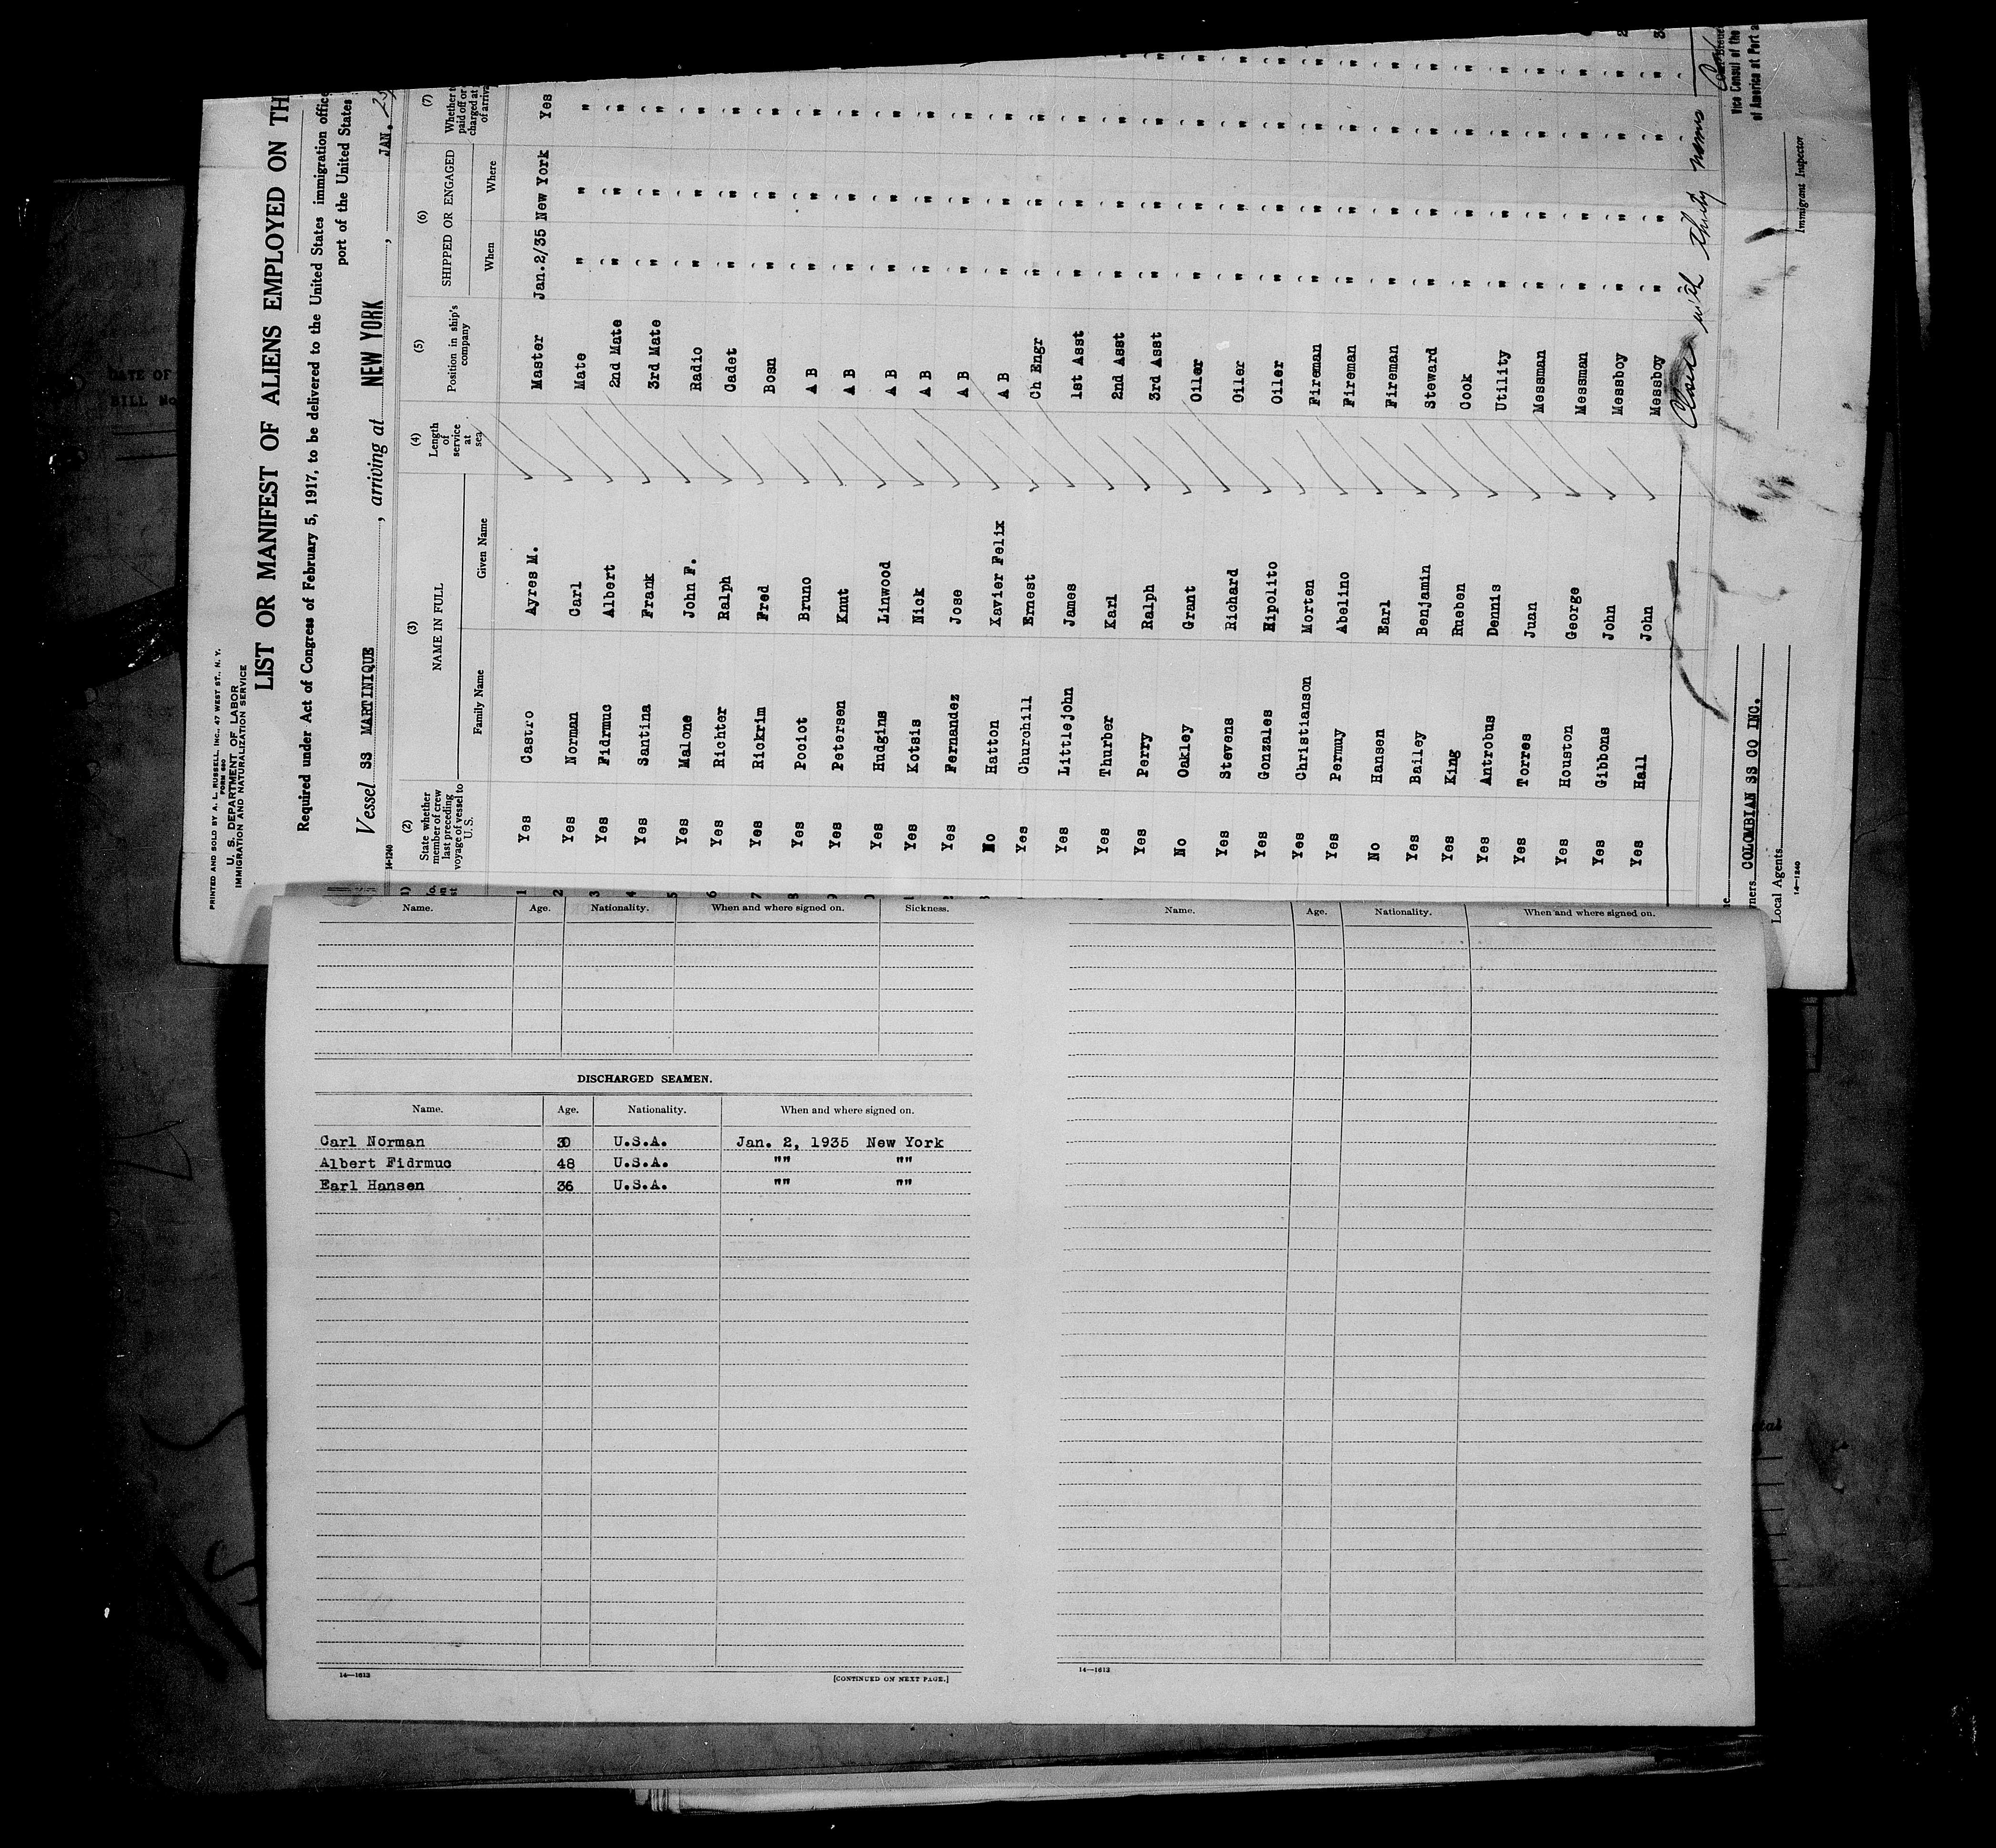 PRINTED AND SOLD BY A. L. RUSSELL, INC., 47 WEST ST., N. Y.
FORM 680
U. S. DEPARTMENT OF LABOR
IMMIGRATION AND NATURALIZATION SERVICE
LIST OR MANIFEST OF ALIENS EMPLOYED ON TH
Required under Act of Congress of February 5, 1917, to be delivered to the United States immigration office
port of the United States
Vessel SS MARTINIQUE, arriving at NEW YORK, JAN.
14-1240
(2) State whether member of crew last preceding voyage of vessel to U. S. (3) NAME IN FULL (4) Length of service at sea (5) Position in ship's company (6) SHIPPED OR ENGAGED (7)
Family Name Given Name When Where
1 Yes Castro Ayres M. Master Jan.2/35 New York Yes
2 Yes Norman Carl Mate " " "
3 Yes Fidrmuc Albert 2nd Mate " " "
4 Yes Santina Frank 3rd Mate " " "
5 Yes Malone John F. Radio " " "
6 Yes Richter Ralph Cadet " " "
7 Yes Rickrim Fred Bosn " " "
8 Yes Pociot Bruno A B " " "
9 Yes Petersen Knut A B " " "
0 Yes Hudgins Linwood A B " " "
Yes Kotsis Nick A B " " "
2 Yes Fernandez Jose A B " " "
3 No Hatton Xavier Felix A B " " "
Yes Churchill Ernest Ch Engr " " "
Yes Littlejohn James 1st Asst " " "
Yes Thurber Karl 2nd Asst " " "
Yes Perry Ralph 3rd Asst " " "
No Oakley Grant Oiler " " "
Yes Stevens Richard Oiler " " "
Yes Gonzales Hipolito Oiler " " "
Yes Christianson Morten Fireman " " "
Yes Permuy Abelino Fireman " " "
No Hansen Earl Fireman " " "
Yes Bailey Benjamin Steward " " "
Yes King Rueben Cook " " "
Yes Antrobus Dennis Utility " " "
Yes Torres Juan Messman " " "
Yes Houston George Messman " " "
Yes Gibbons John Messboy " " "
Yes Hall John Messboy " " "
with thirty names
Vice Consul of the
of America at Port a
ners COLOMBIAN SS CO INC.
Local Agents
Immigrant Inspector
14-1240
Name. Age. Nationality. When and where signed on. Sickness.
DISCHARGED SEAMEN.
Name. Age. Nationality. When and where signed on.
Carl Norman 30 U.S.A. Jan. 2, 1935 New York
Albert Fidrmuc 48 U.S.A. "" ""
Earl Hansen 36 U.S.A. "" ""
14—1613
[CONTINUED ON NEXT PAGE.]
Name. Age. Nationality. When and where signed on.
14—1613
DATE OF
BILL No